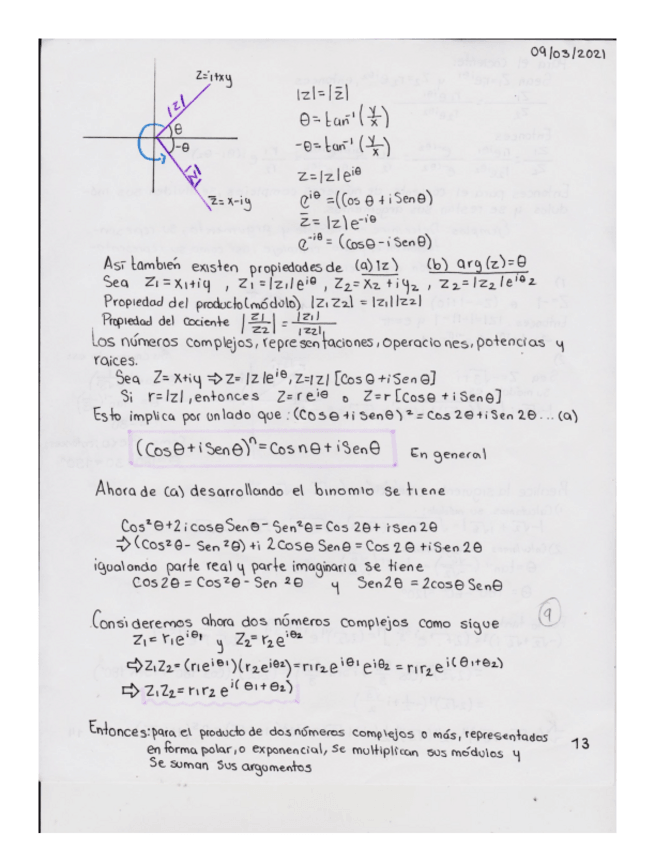 09/03/2021
Z=1+xy
|z|
θ
-θ
|z̄|
z̄=x-iy
|z|=|z̄|
θ=tan⁻¹(y/x)
-θ=tan⁻¹(y/x)
z=|z|e^iθ
e^iθ=(Cos θ+iSenθ)
z̄=|z|e^-iθ
e^-iθ=(Cosθ-iSenθ)
Así también existen propiedades de (a)|z) (b) arg(z)=θ
Sea Z₁=x₁+iy, Z₁=|z₁|e^iθ, Z₂=x₂+iy₂, Z₂=|z₂|e^iθ₂
Propiedad del producto(módulo) |Z₁Z₂|=|Z₁||Z₂|
Propiedad del cociente |Z₁/Z₂|=|Z₁|/|Z₂|
Los números complejos, representaciones, operaciones, potencias y
raices.
Sea Z=x+iy ⇒ Z=|z|e^iθ, Z=|z|[Cosθ+iSenθ]
Si r=|z|, entonces Z=re^iθ o Z=r[Cosθ+iSenθ]
Esto implica por un lado que: (Cosθ+iSenθ)²=Cos2θ+iSen2θ...(a)
(Cosθ+iSenθ)ⁿ=Cosnθ+iSenθ En general
Ahora de (a) desarrollando el binomio se tiene
Cos²θ+2icosθSenθ-Sen²θ=Cos2θ+isen2θ
⇒(Cos²θ-Sen²θ)+i2CosθSenθ=Cos2θ+iSen2θ
igualando parte real y parte imaginaria se tiene
Cos2θ=Cos²θ-Sen²θ y Sen2θ=2cosθSenθ
Consideremos ahora dos números complejos como sigue
9
Z₁=r₁e^iθ₁ y Z₂=r₂e^iθ₂
⇒Z₁Z₂=(r₁e^iθ₁)(r₂e^iθ₂)=r₁r₂e^iθ₁e^iθ₂=r₁r₂e^i(θ₁+θ₂)
⇒Z₁Z₂=r₁r₂e^i(θ₁+θ₂)
Entonces:para el producto de dos números complejos o más, representados
en forma polar, o exponencial, se multiplican sus módulos y
Se suman sus argumentos
13